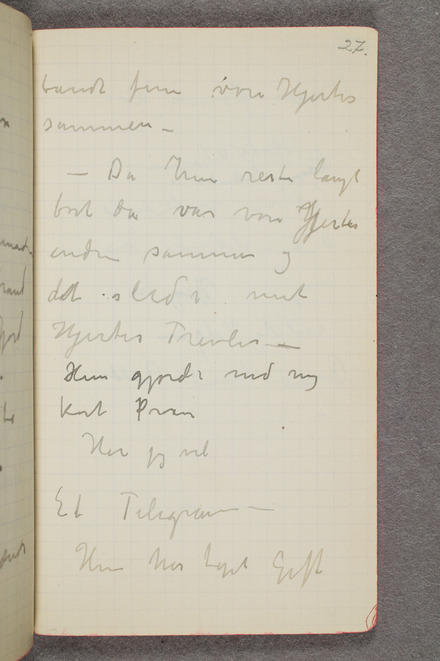 27.
bandt hun vore Hjerter
sammen –
– Da hun reiste langt
bort da var vore Hjerter
endnu sammen og
det sled i mit
Hjertes Trevler –
Hun gjorde med mig
kort Proces
Har jeg vel
Et Telegram –
Hun har taget Gift